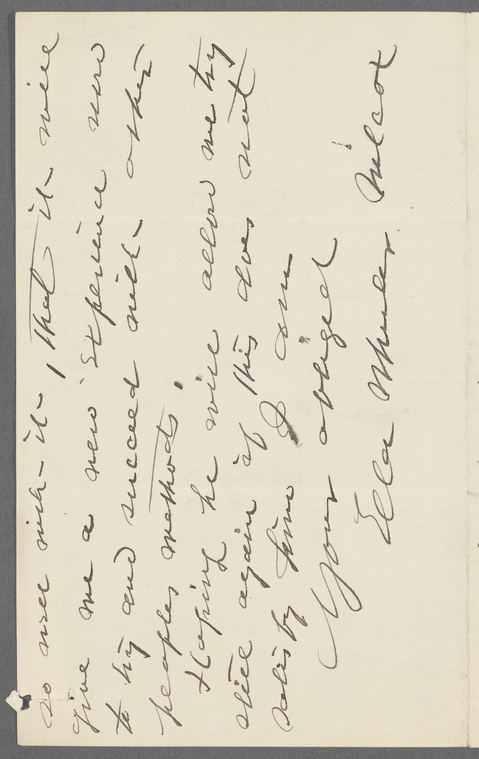 so well with it, that it will
give me a new experience now
to try and succeed with other
peoples methods.
Hoping he will allow me try
still again if this does not
satisby him I am
Your obliged
Ella Wheeler Wilcox